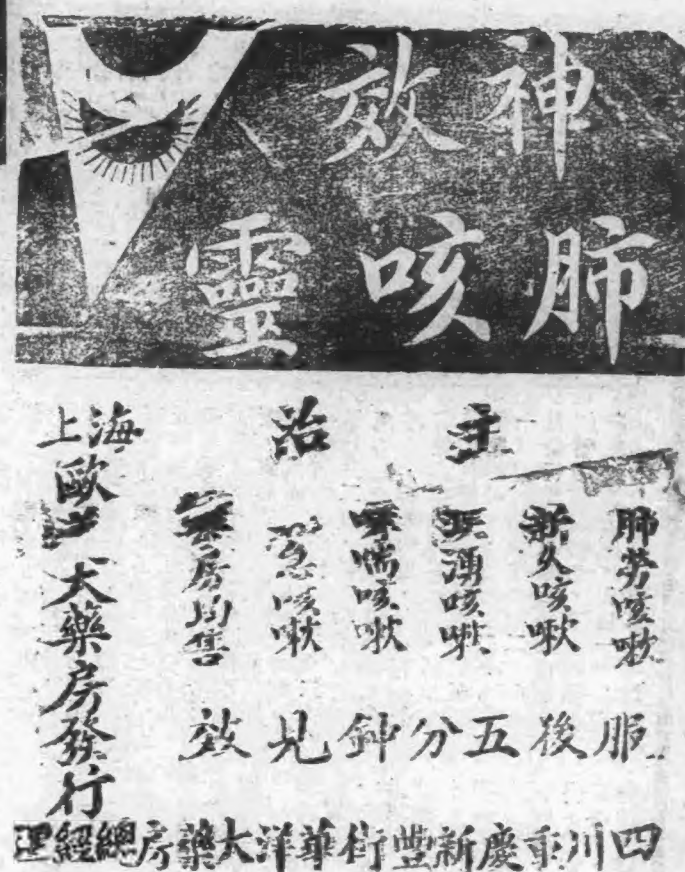 神效
肺咳靈
主治
肺勞咳嗽
新久咳嗽
湧咳嗽
喘咳嗽
急咳嗽
房均售
服後五分鐘見效
上海歐
大藥房發行
四川重慶新豐街華洋大藥房總經理